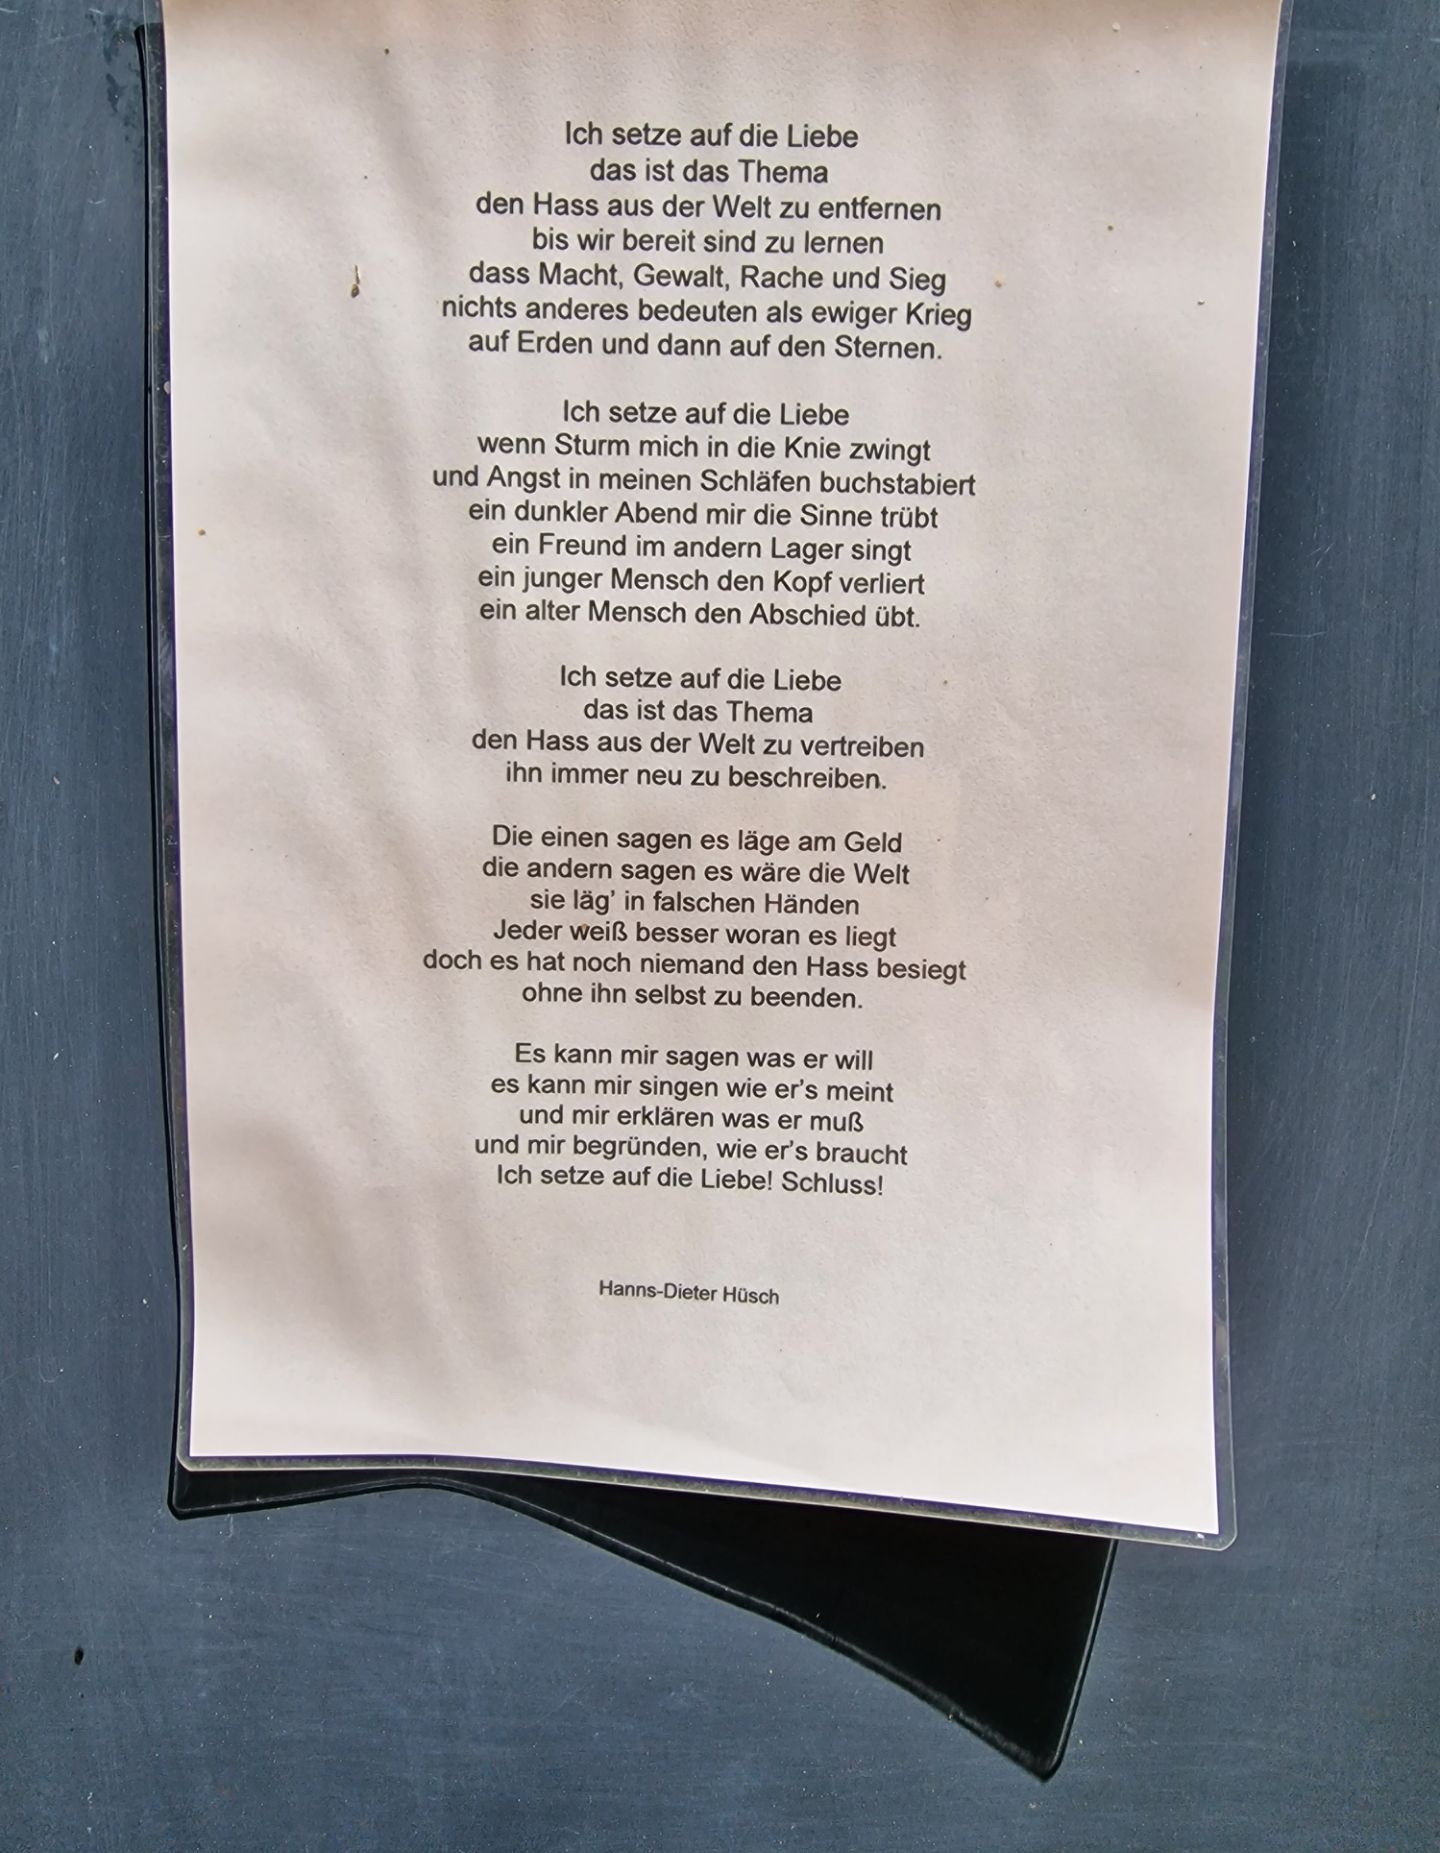 Ich setze auf die Liebe
das ist das Thema
den Hass aus der Welt zu entfernen
bis wir bereit sind zu lernen
dass Macht, Gewalt, Rache und Sieg
nichts anderes bedeuten als ewiger Krieg
auf Erden und dann auf den Sternen.
Ich setze auf die Liebe
wenn Sturm mich in die Knie zwingt
und Angst in meinen Schläfen buchstabiert
ein dunkler Abend mir die Sinne trübt
ein Freund im andern Lager singt
ein junger Mensch den Kopf verliert
ein alter Mensch den Abschied übt.
Ich setze auf die Liebe
das ist das Thema
den Hass aus der Welt zu vertreiben
ihn immer neu zu beschreiben.
Die einen sagen es läge am Geld
die andern sagen es wäre die Welt
sie läg’ in falschen Händen
Jeder weiß besser woran es liegt
doch es hat noch niemand den Hass besiegt
ohne ihn selbst zu beenden.
Es kann mir sagen was er will
es kann mir singen wie er’s meint
und mir erklären was er muß
und mir begründen, wie er’s braucht
Ich setze auf die Liebe! Schluss!
Hanns-Dieter Hüsch